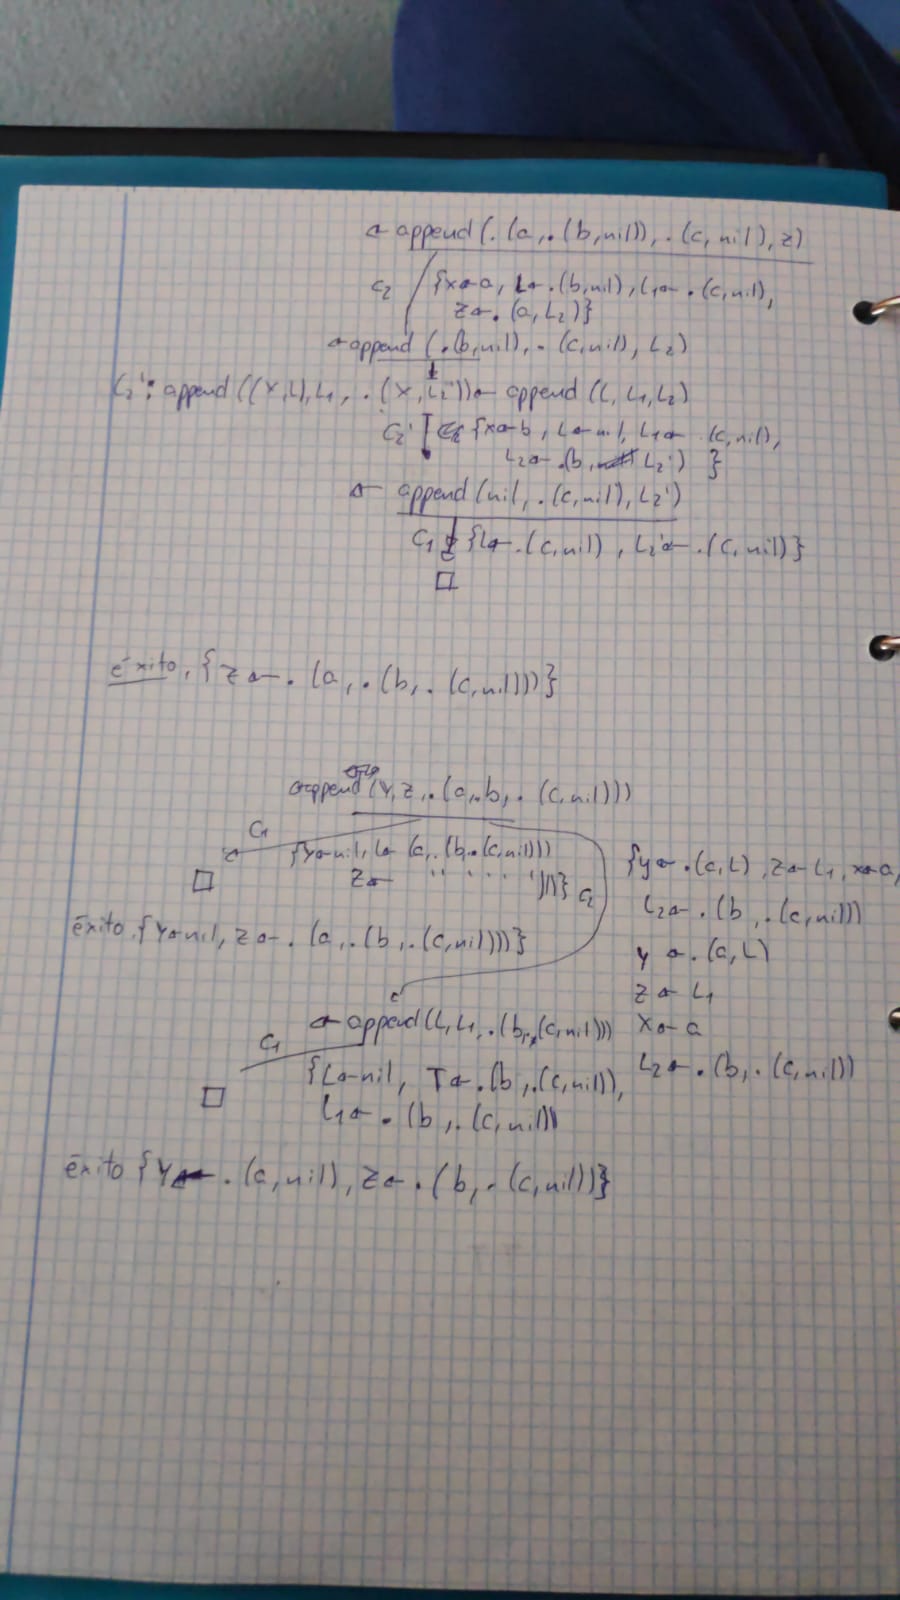 ← append(.(a,.(b,nil)),.(c,nil),z)
C2 {x←a, L←.(b,nil), L1←.(c,nil),
z←.(a,L2)}
←append(.(b,nil),.(c,nil),L2)
C2': append((X,L),L1,.(X,L2'))← append(L,L1,L2)
C2' {x←b, L←nil, L1←.(c,nil),
L2←.(b, L2') }
← append(nil,.(c,nil),L2')
C1 {L←.(c,nil), L2'←.(c,nil)}
□
éxito, {z←.(a,.(b,.(c,nil)))}
←append(Y,z,.(a,.b,.(c,nil)))
C1
{y←nil, L←(a,.(b,.(c,nil)))
□ z← '' ' ' ' ')))} C2
éxito {Y←nil, z←.(a,.(b,.(c,nil)))}
{y←.(a,L), z←L1, x←a,
L2←.(b,.(c,nil))
y←.(a,L)
z←L1
x←a
L2←.(b,.(c,nil))
← append(L,L1,.(b,.(c,nil)))
C1
□ {L←nil, T←.(b,.(c,nil)),
L1←.(b,.(c,nil))
éxito {Y←.(a,nil), z←.(b,.(c,nil))}